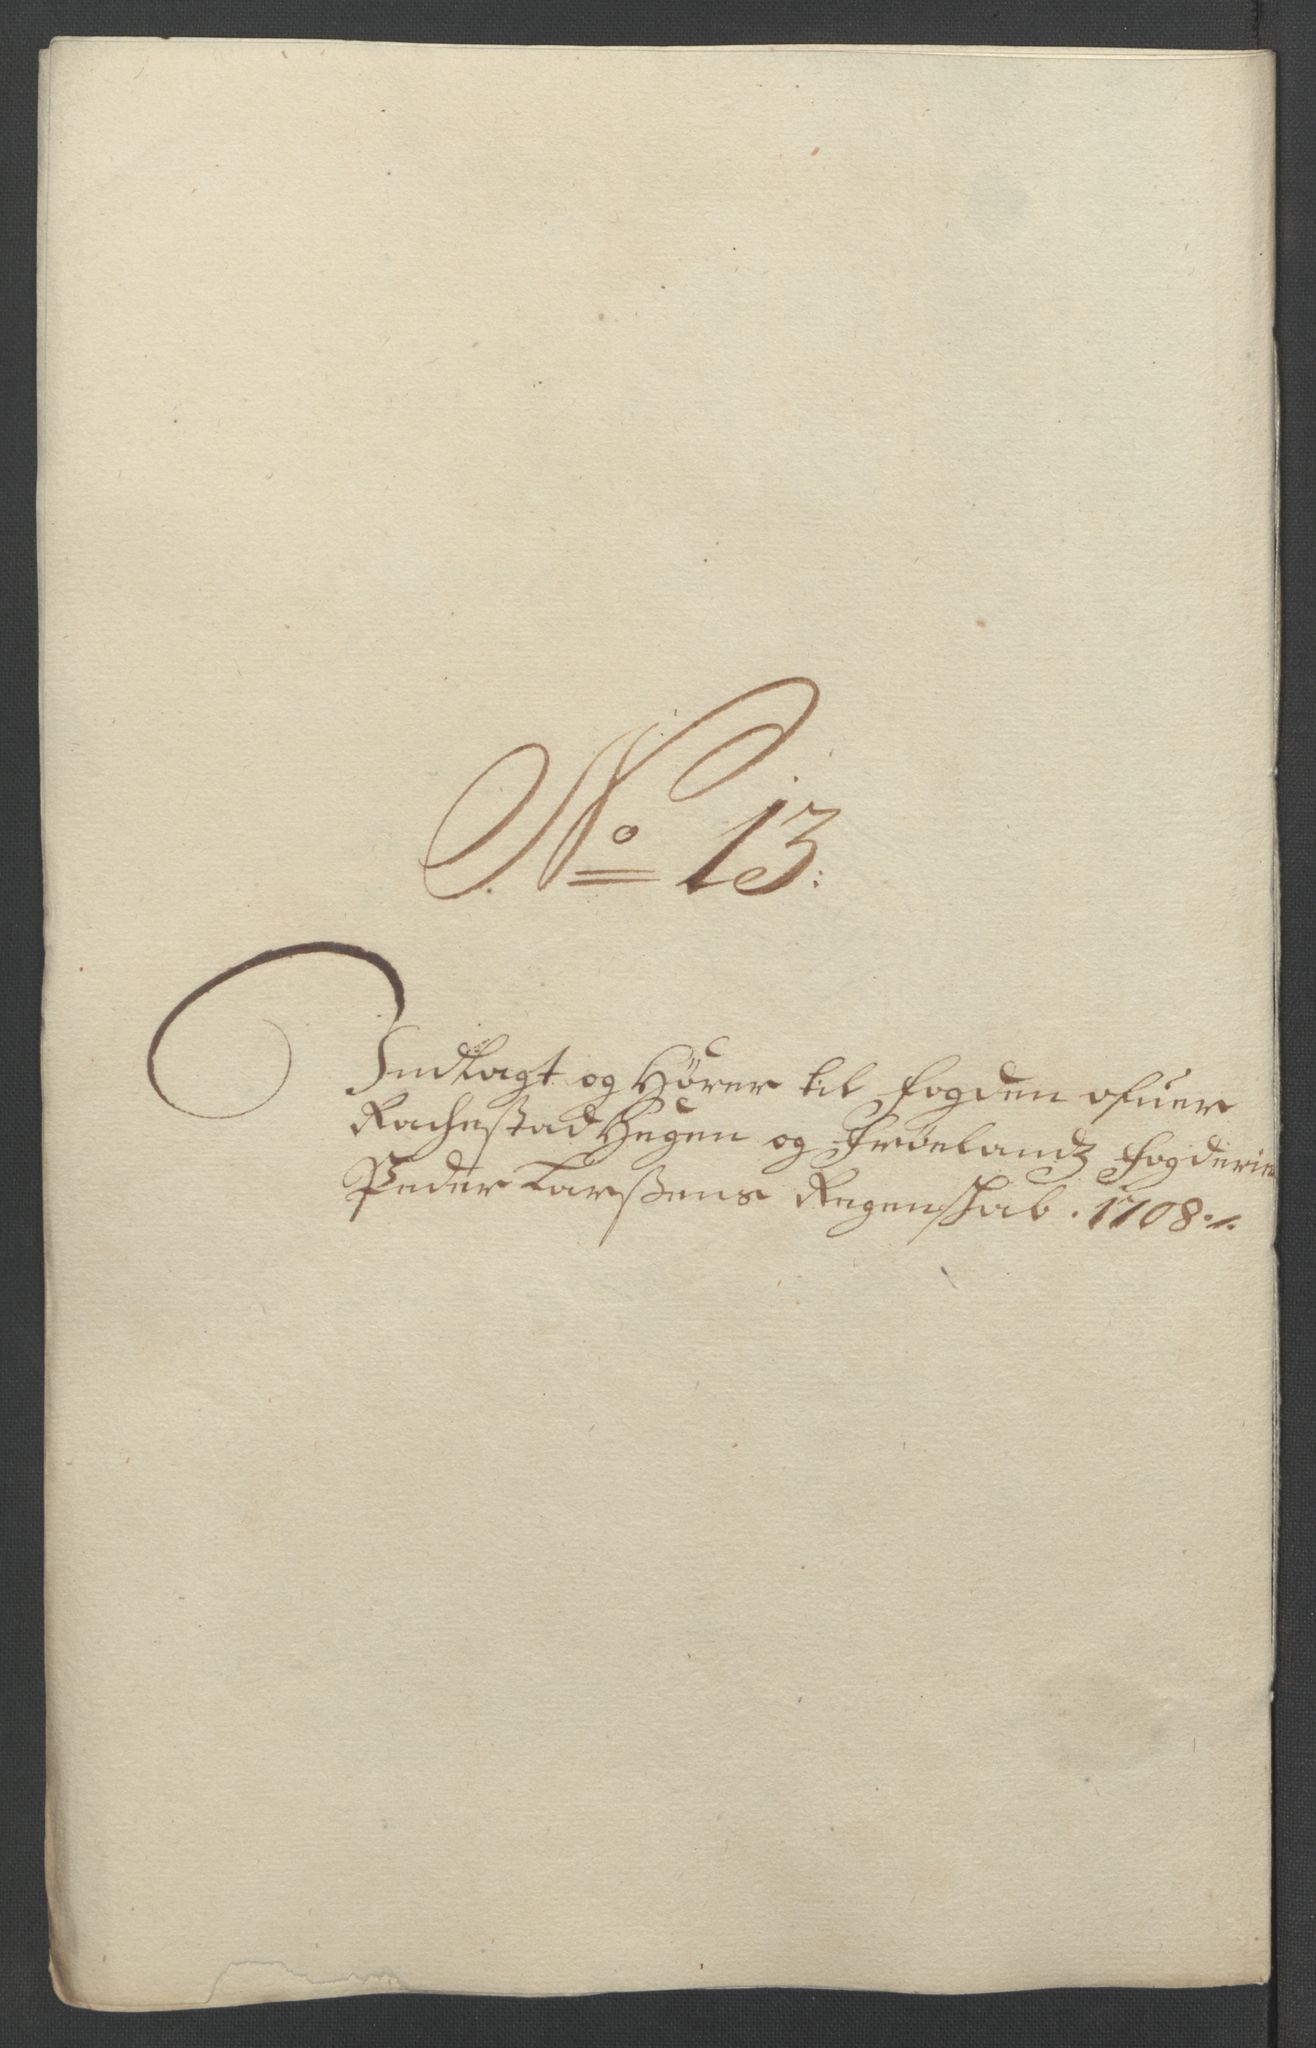 No 13:
Indlagt og Hører til fogden ofuer
Rachestad Hegen og Frøelandz fogderie
Peder Larßens Regenskab. 1708 ./.